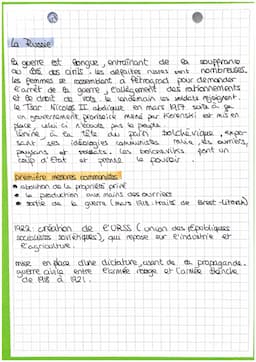 La Russie
la guerre est longue, entraînant de la souffrance
au côté des civils. les défaites russes sont nombreuses.
les femmes se rassemblent à Petrograd pour demander
l'arrêt de la guerre, l'allègement des rationnements
et le droit de vote. le lendemain les soldats rejoignent.
le Tsar Nicolas II abdique en mars 1917 suite à ça
un gouvernement provisoire mené par Kerenski est mis en
place, celui ci n'écoute pas le peuple.
Lénine, à la tête du parti bolchévique, expo-
sant ses idéologies communistes ouvriers,
paysans et soldats. les bolcheviks font un
coup d'État et prense le pouvoir.
première mesures communistes
• abolition de la propriété privé
• la production aux mains des ouvriers
• sortie de la guerre (mars 1918 : traité de Brest-Litovsk)
1922 création de l'URSS (union des républiques
socialistes soviétiques), qui repose sur l'industrie et
l'agriculture.
mise en place d'une dictature, usant de la propagande.
guerre civile entre l'armée rouge et l'armée blanche
de 1918 à 1921.